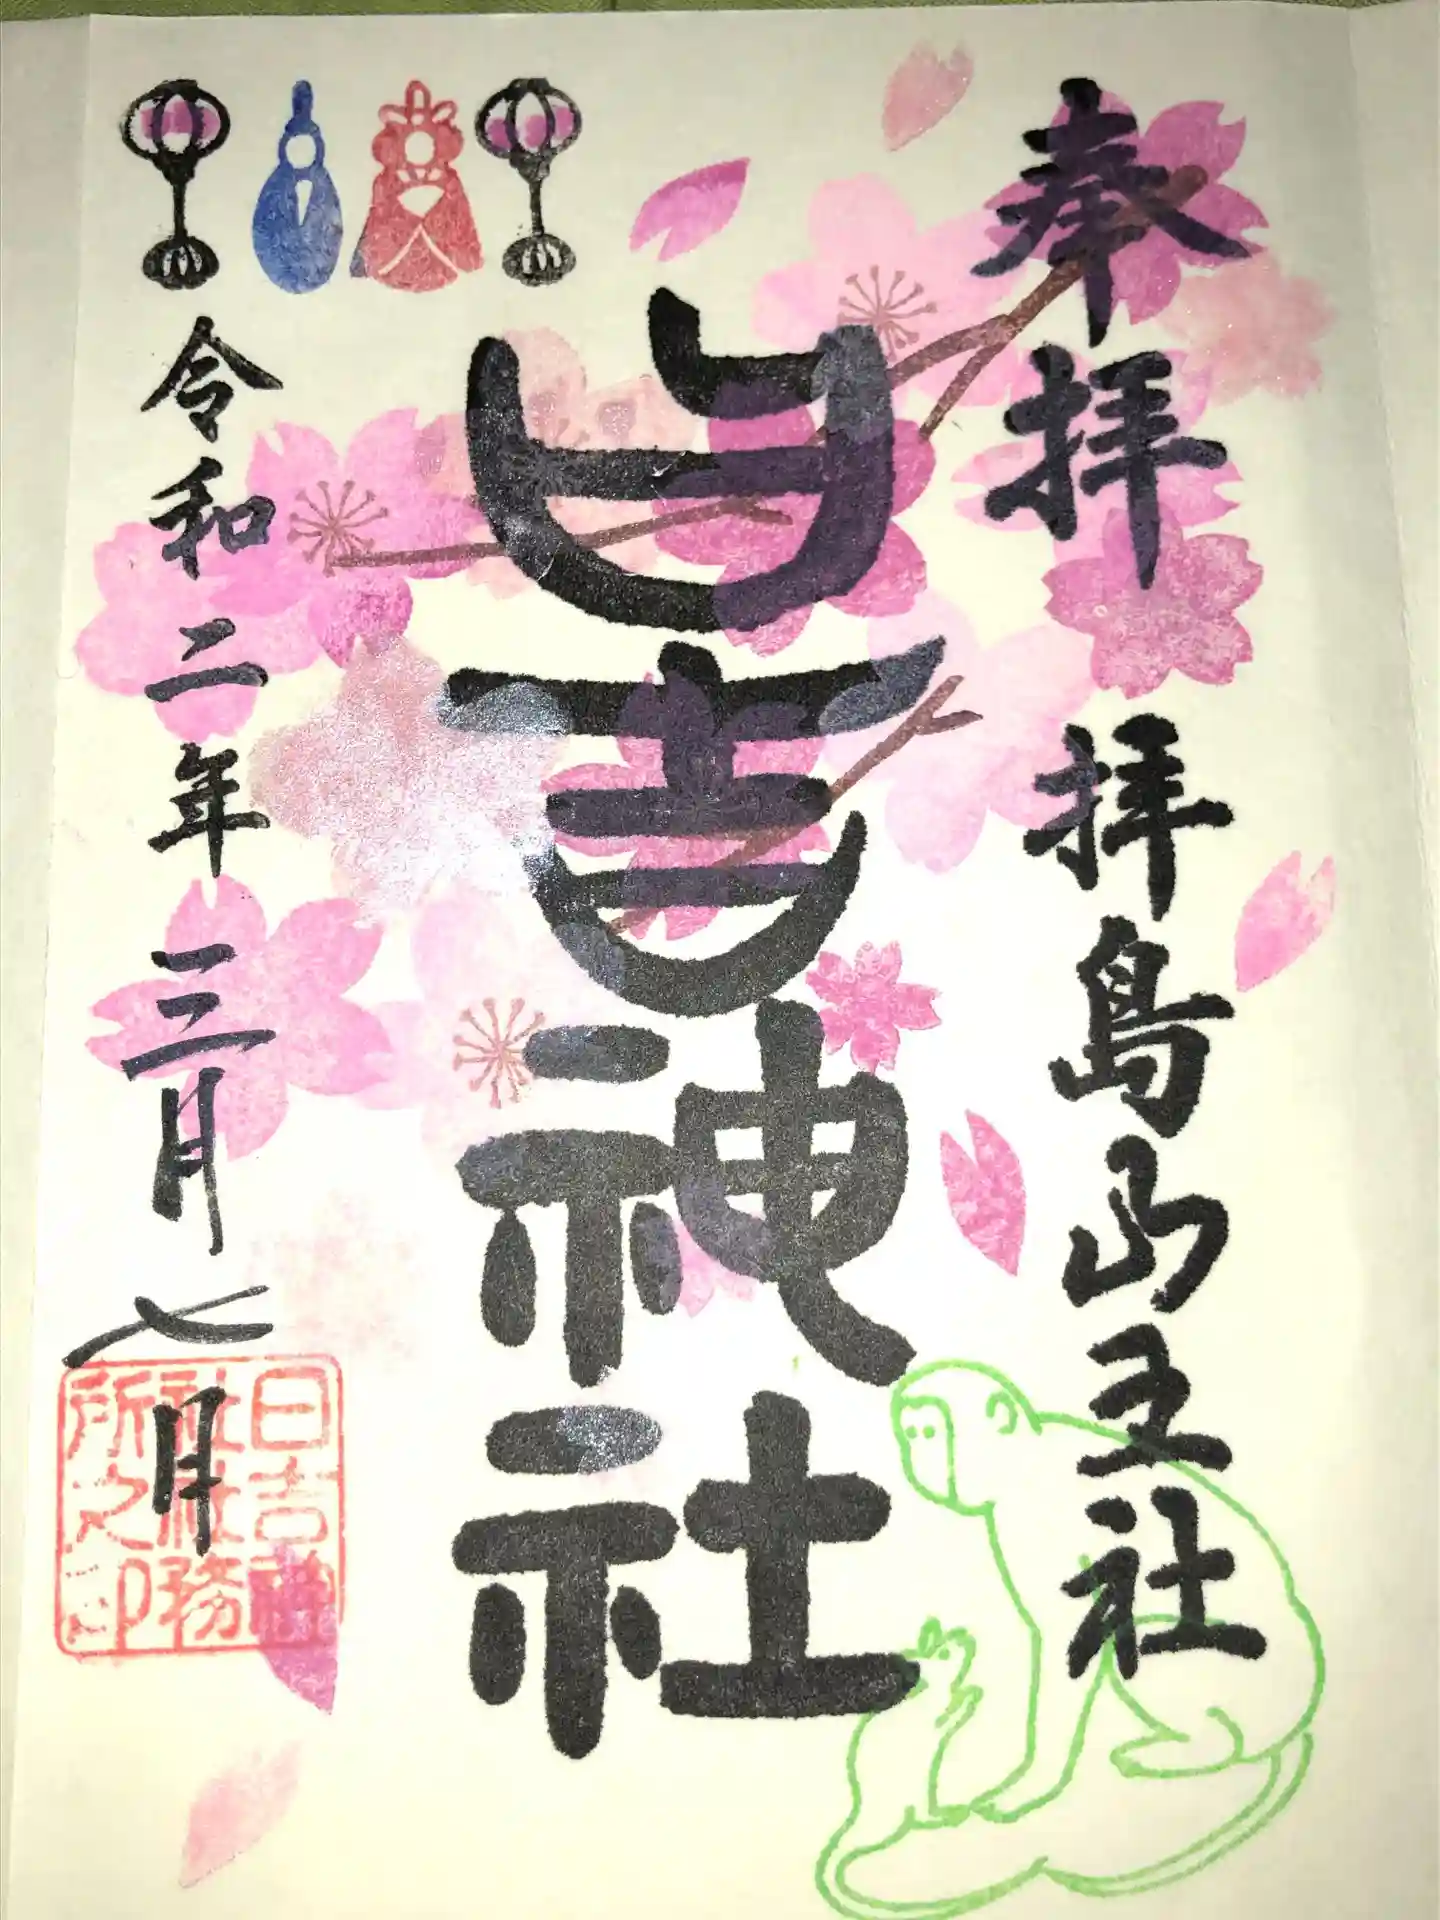 奉拝
拝島山王社
日吉神社
令和二年三月七月
日吉神
社社務
所之印